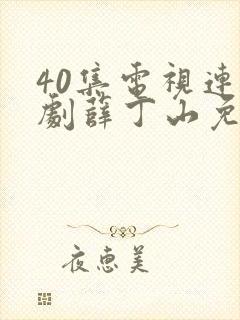 40集電視連
劇薛丁山免
夜惠美